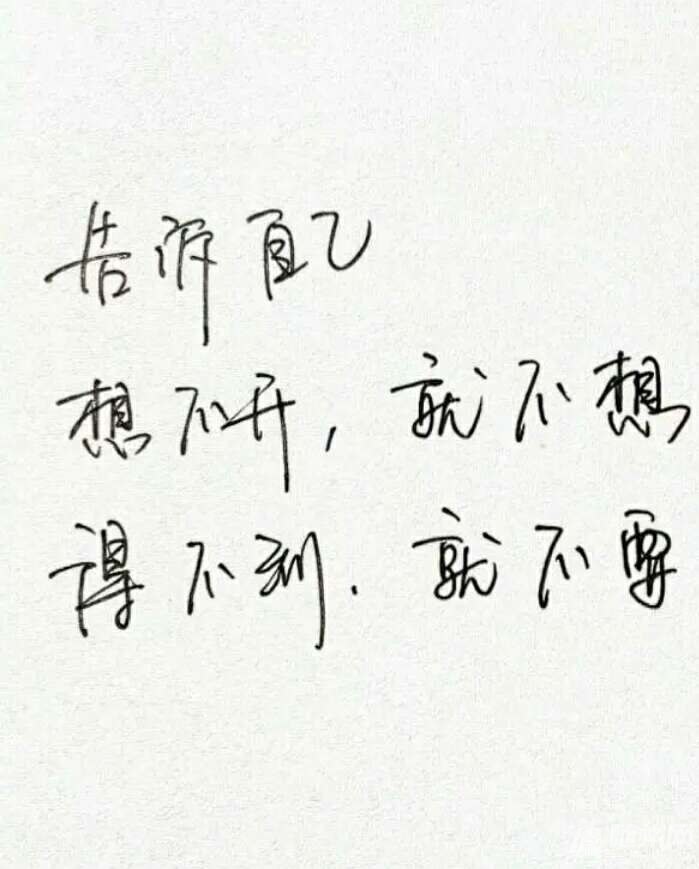 告诉自己
想不开，就不想
得不到.就不要